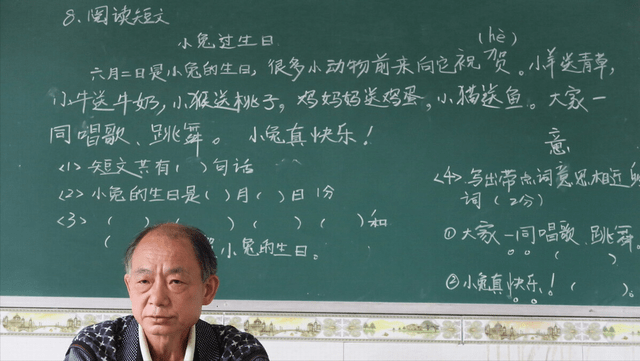 8.阅读短文
小兔过生日
(hè)
六月二日是小兔的生日，很多小动物前来向它祝贺。小羊送青草，
小牛送牛奶，小猴送桃子，鸡妈妈送鸡蛋，小猫送鱼。大家一
同唱歌、跳舞。小兔真快乐！
<1>短文共有（ ）句话
<2>小兔的生日是（ ）月（ ）日 1分
<3>（ ）（ ）（ ）（ ）（ ）和
（ 小兔的生日。
意
<4>.写出带点词意思相近的
词（2分）
①大家一同唱歌、跳舞。
（ ）
②小兔真快乐！（ ）。